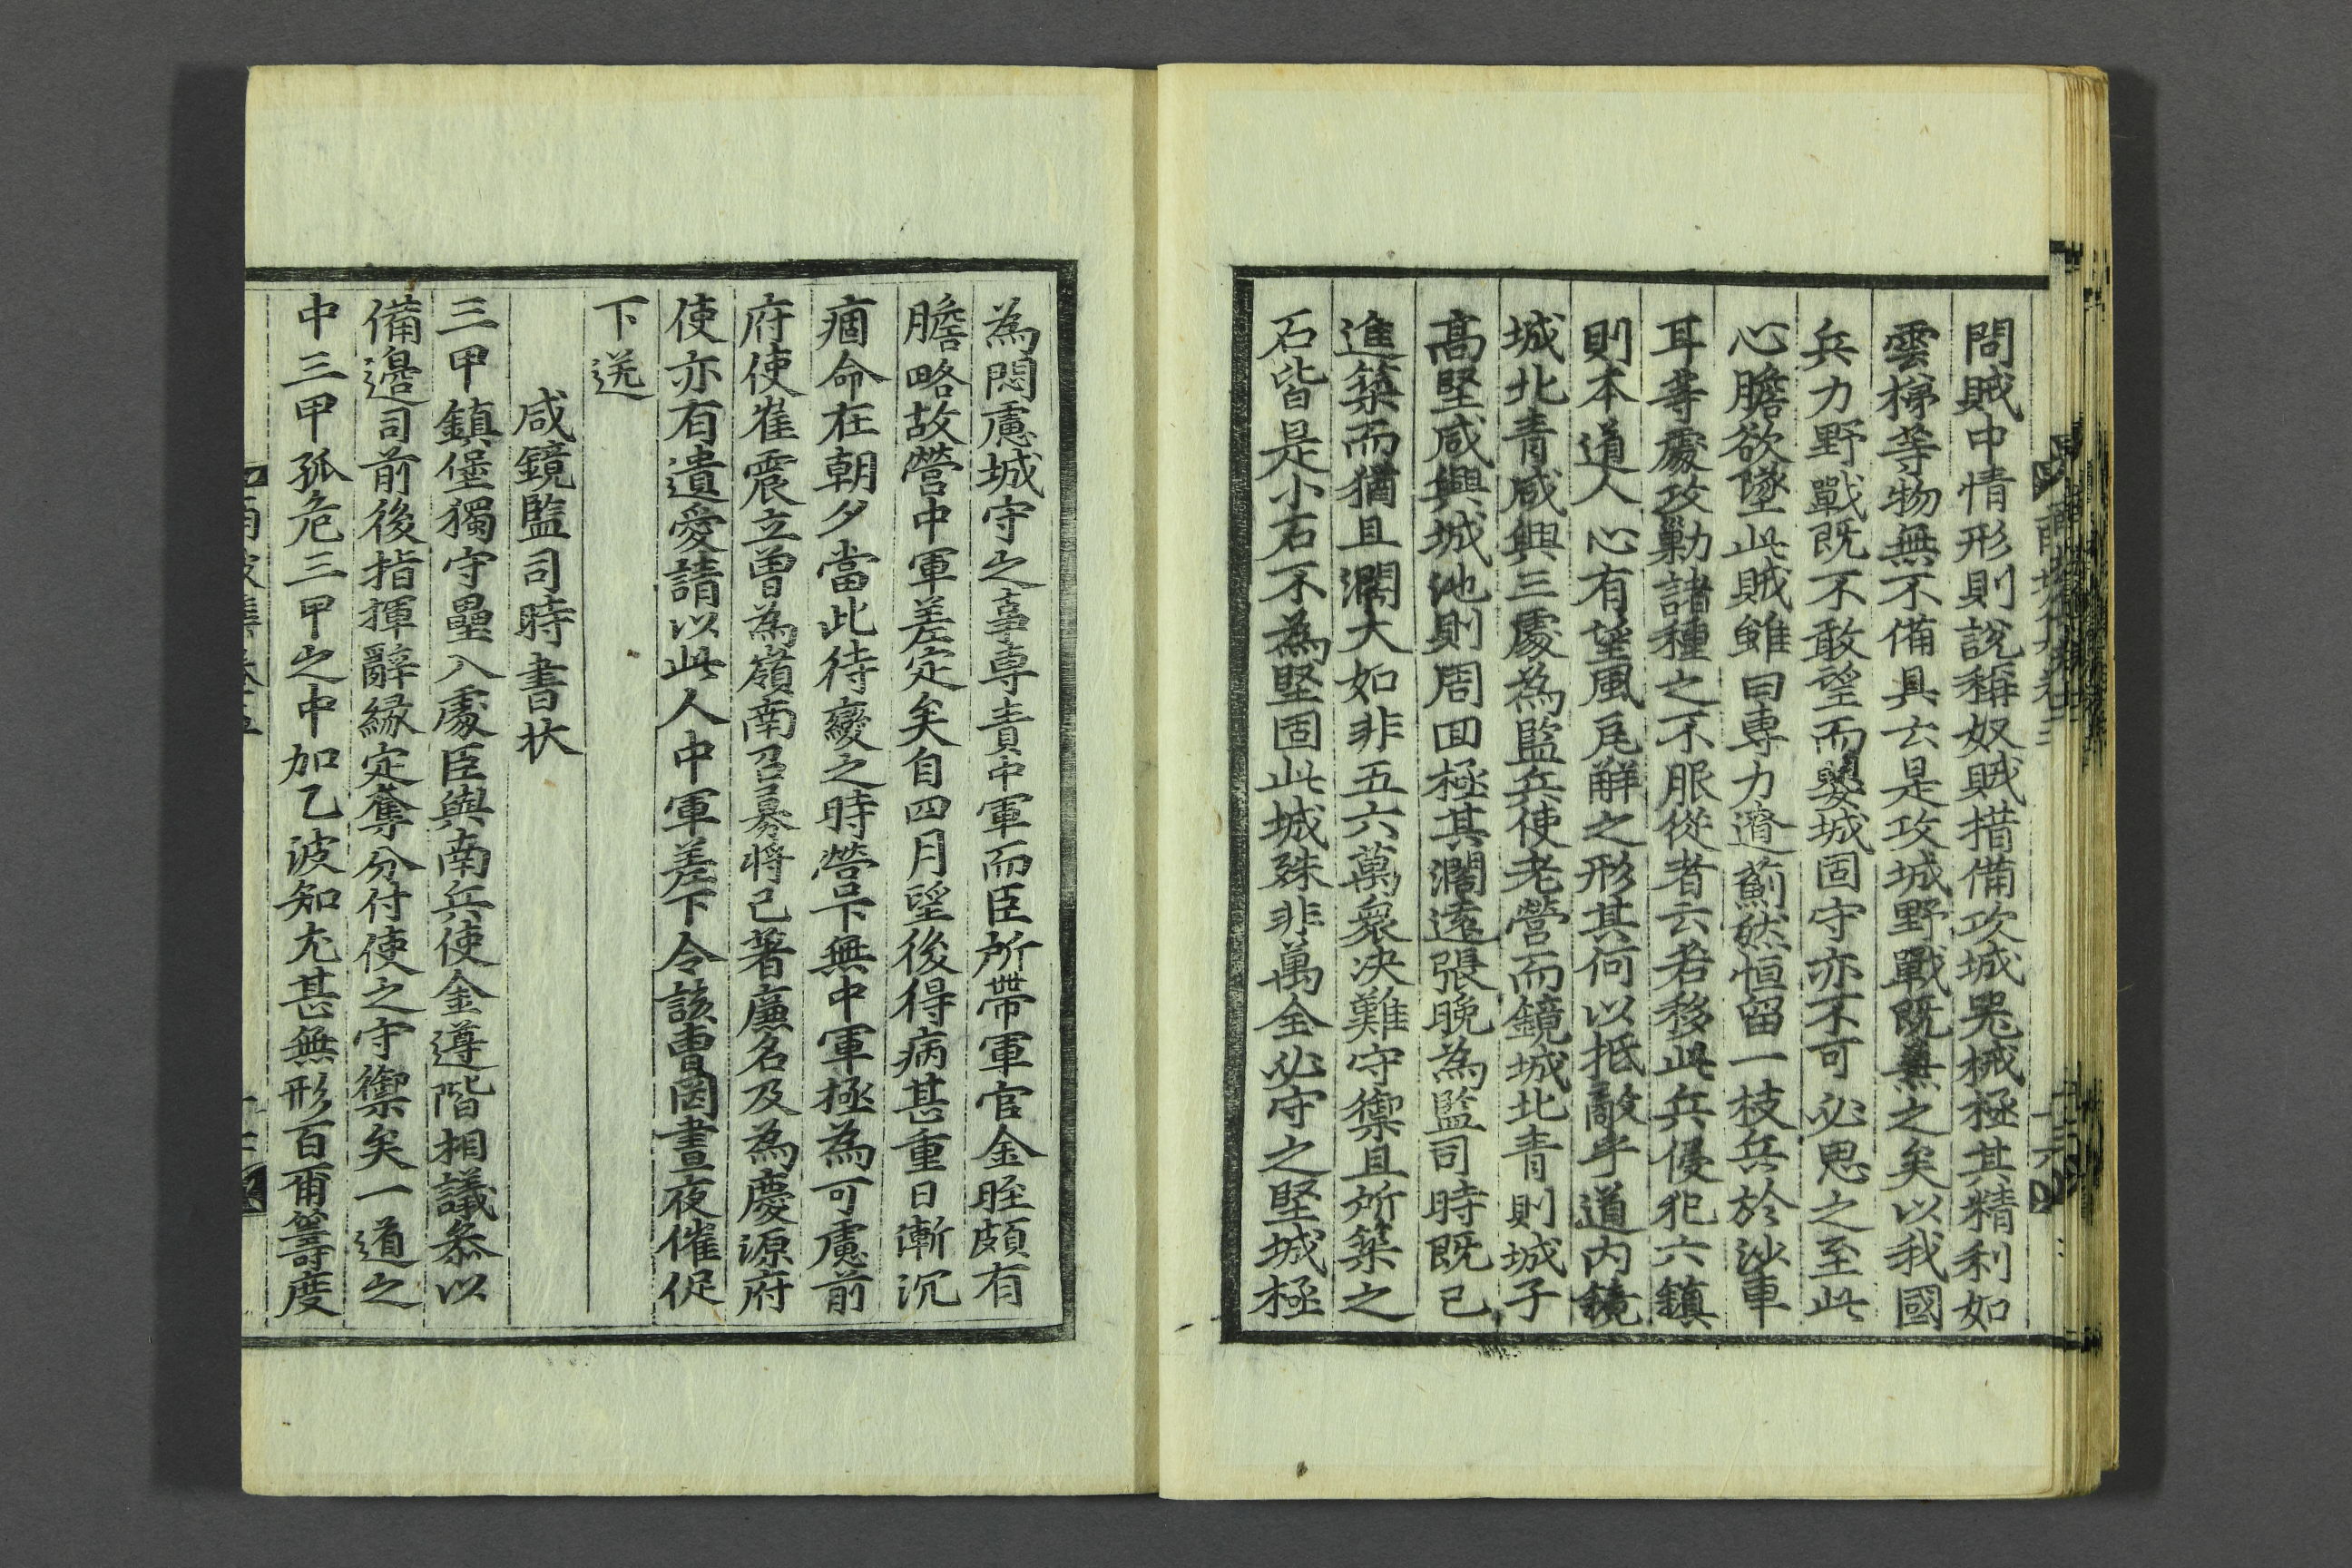 問賊中情形則說稱奴賊措備攻城器械極其精利如
雲梯等物無不備具云是攻城野戰既無之矣以我國
兵力野戰既不敢望而嬰城固守亦不可必思之至此
心膽欲墜此賊雖曰專力遼薊然恒留一枝兵於沙車
耳等處攻勦諸種之不服從者云若移此兵侵犯六鎮
則本道人心有望風瓦解之形其何以抵敵乎道內鏡
城北青咸興三處為監兵使老營而鏡城北青則城子
高堅咸興城池則周回極其濶遠張晚為監司時既已
進築而猶且濶大如非五六萬衆决難守禦且所築之
石皆是小石不為堅固此城殊非萬全必守之堅城極
為悶慮城守之事專責中軍而臣所帶軍官金胵頗有
膽略故營中軍差定矣自四月望後得病甚重日漸沉
痼命在朝夕當此待變之時營下無中軍極為可慮前
府使崔震立曾為嶺南召募將已著廉名及為慶源府
使亦有遺愛請以此人中軍差下令該曹罔晝夜催促
下送
咸鏡監司時書狀
三甲鎮堡獨守壘入處臣與南兵使金遵階相議叅以
備邊司前後指揮辭緣定奪分付使之守禦矣一道之
中三甲孤危三甲之中加乙波知尤甚無形百爾籌度